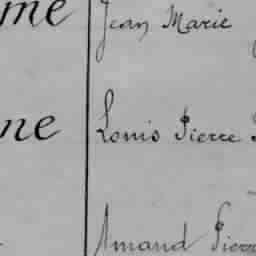 me Jean Marie
ne Louis Pierre
Amand Pierre